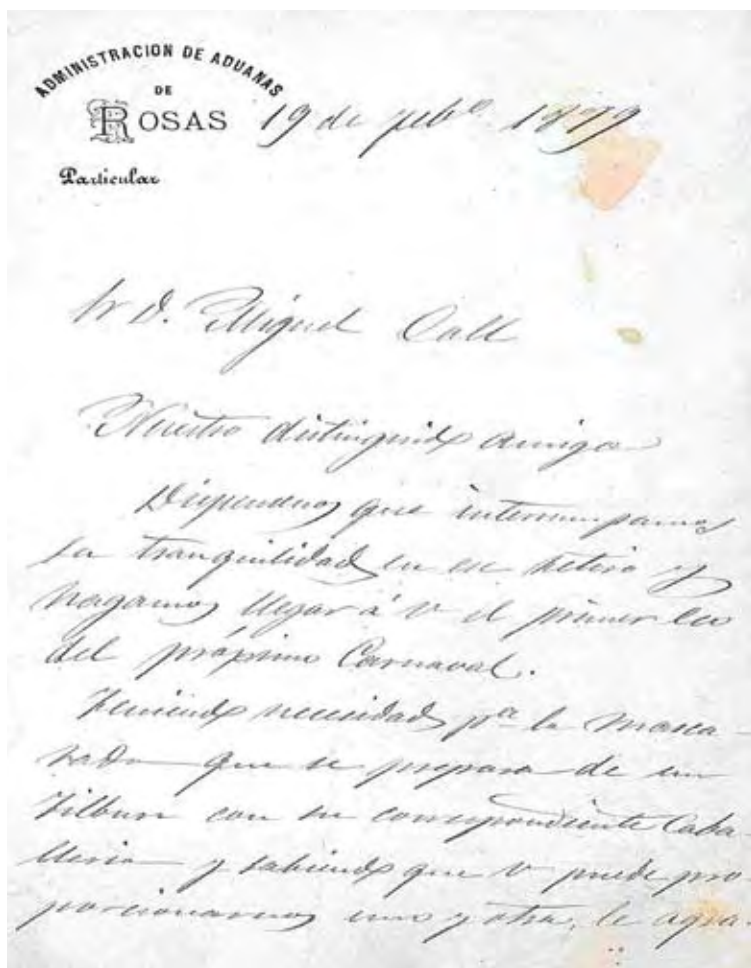 ADMINISTRACION DE ADUANAS
DE
ROSAS
19 de febo. 1879
Particular
Sr D. Miguel Coll
Nuestro distinguido amigo
Dispensenos que interrumpamos
su tranquilidad en ese retiro y
hagamos llegar á V el primer eco
del próximo Carnaval.
Teniendo necesidad pa la masca-
rada que se prepara de un
Tilburi con su correspondiente Caba-
lleria y sabiendo que V puede pro-
porcionarnos uno y otra, le agra-